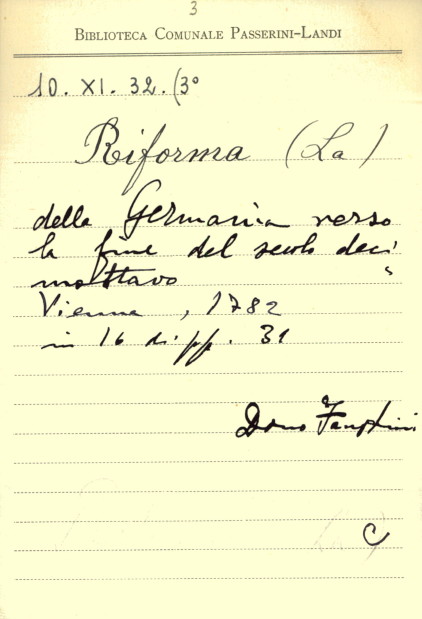 3
BIBLIOTECA COMUNALE PASSERINI-LANDI
10. XI. 32. (3°
Riforma (La)
della Germania verso
la fine del secolo deci
mottavo
Vienna, 1782
in 16 di pp. 31
Dono
C